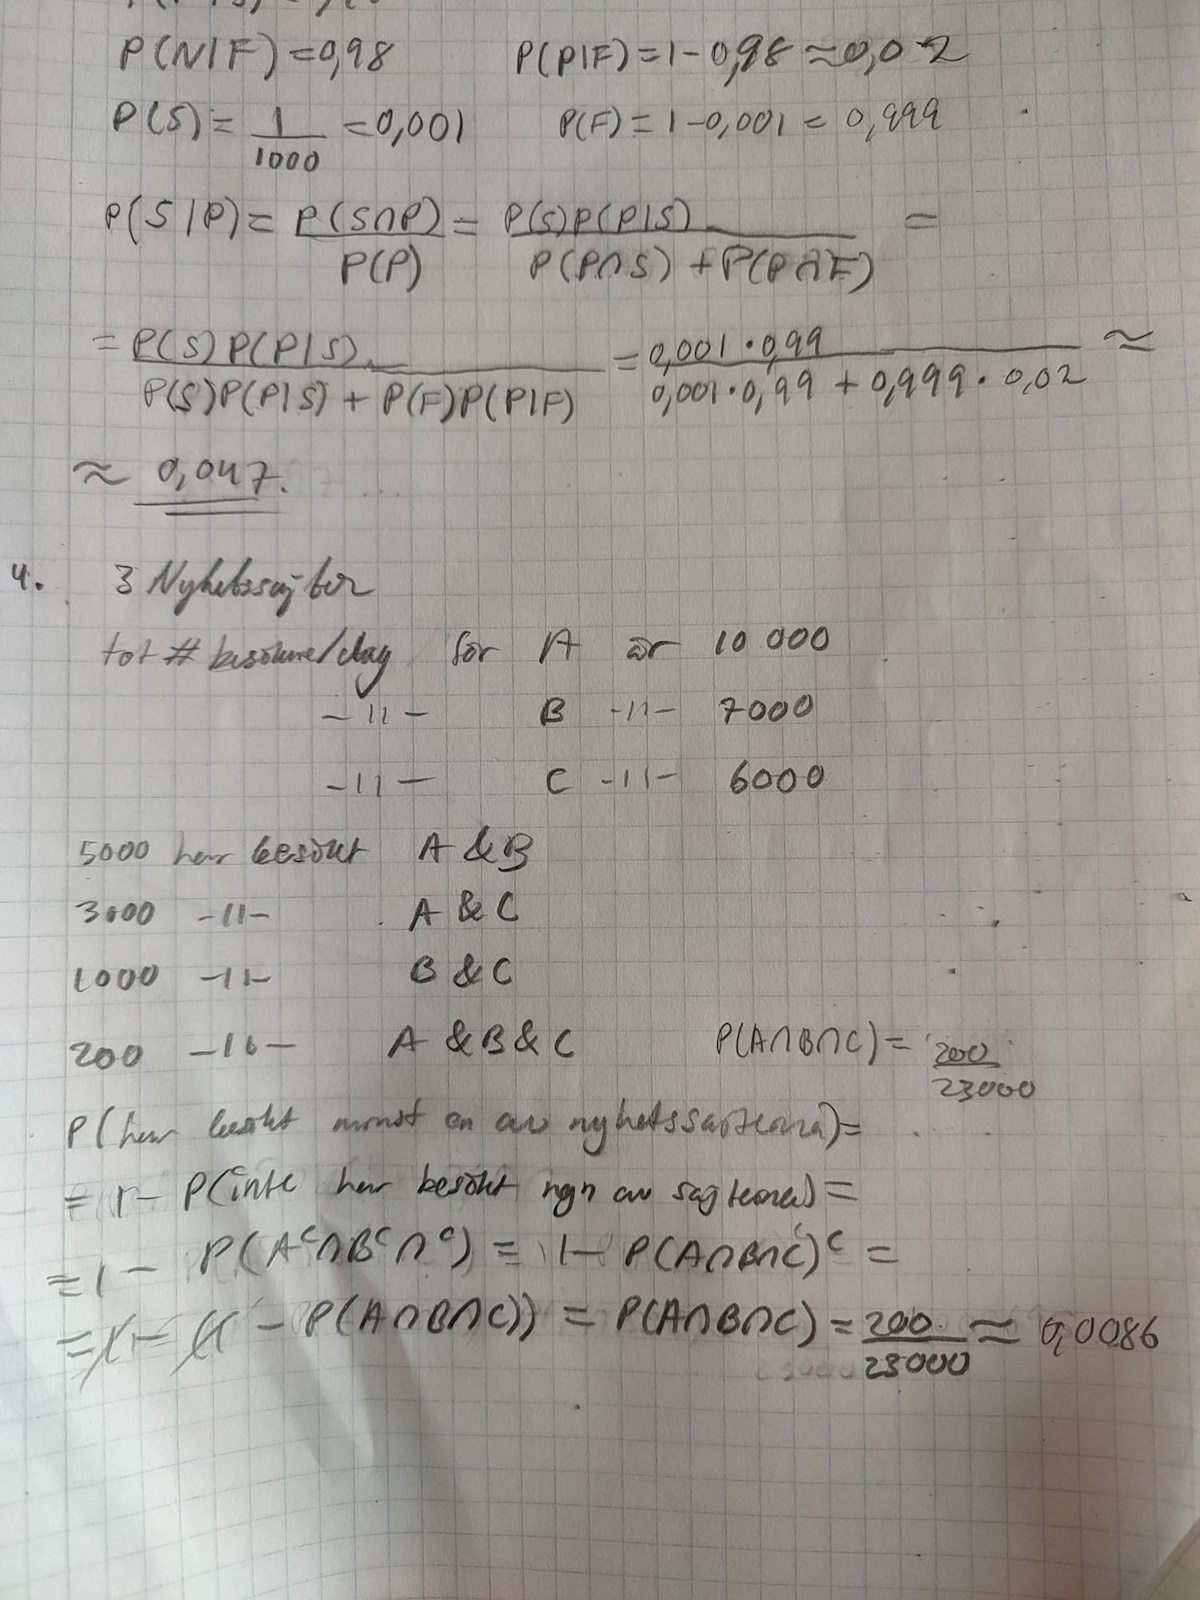 P(N|F)=0,98 P(P|F)=1-0,98≈0,02
P(S)=1/1000=0,001 P(F)=1-0,001=0,999
P(S|P)=P(S∩P)/P(P)=P(S)P(P|S)/P(P∩S)+P(P∩F) =
=P(S)P(P|S)/P(S)P(P|S)+P(F)P(P|F)=0,001·0,99/0,001·0,99+0,999·0,02 ≈
≈ 0,047.
4. 3 Nyhetssajter
tot # besökare/dag för A är 10 000
-11- B -11- 7000
-11- C -11- 6000
5000 har besökt A & B
3000 -11- A & C
1000 -11- B & C
200 -11- A & B & C P(A∩B∩C)=200/23000
P(har besökt minst en av nyhetssajterna)=
=1-P(inte har besökt ngn av sajterna)=
=1-P(Aᶜ∩Bᶜ∩ᶜ)=1-P(A∩B∩C)ᶜ=
=1-(1-P(A∩B∩C))=P(A∩B∩C)=200/23000≈0,0086